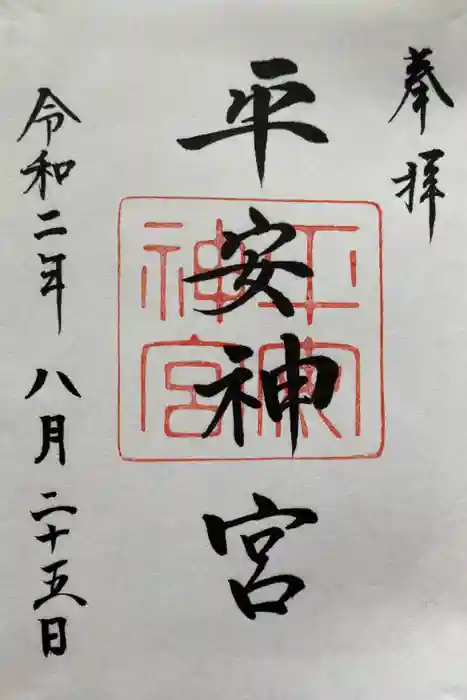 奉拝
平安神宮
令和二年八月二十五日